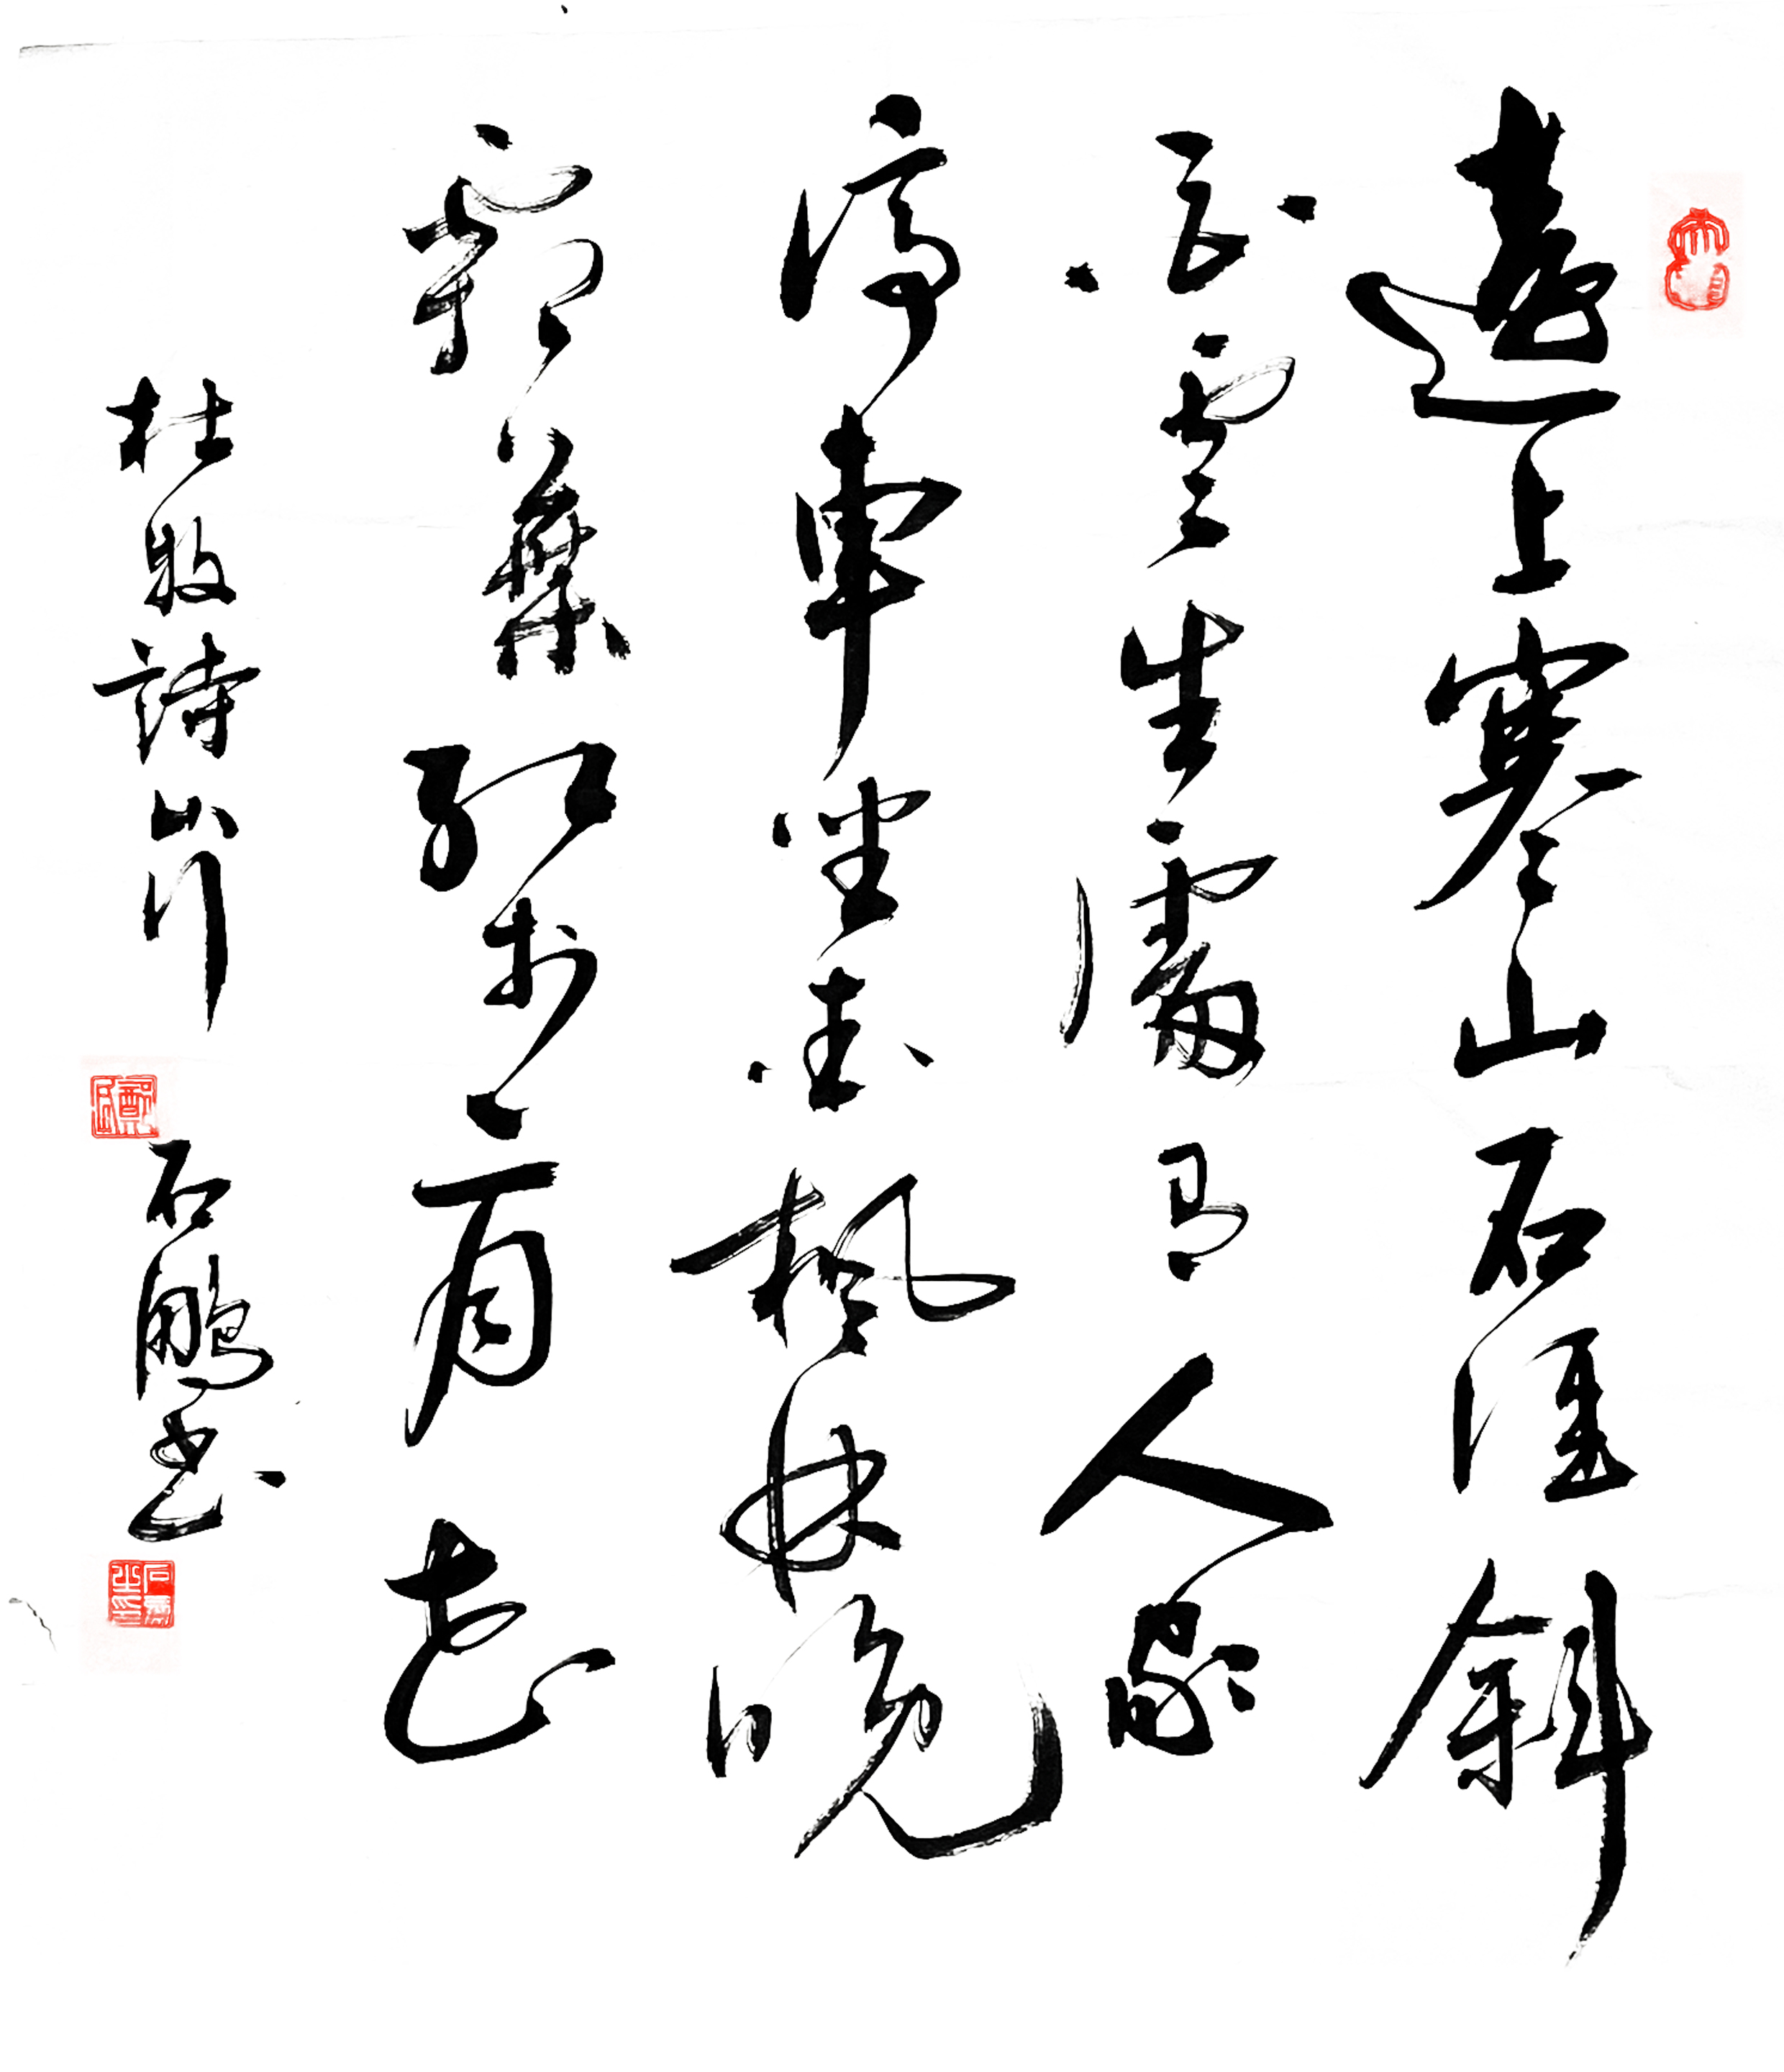 遠上寒山石徑斜
白雲生處有人家
停車坐愛楓林晚
霜葉紅於二月花
杜牧詩山行
石鵬書
石鵬之印